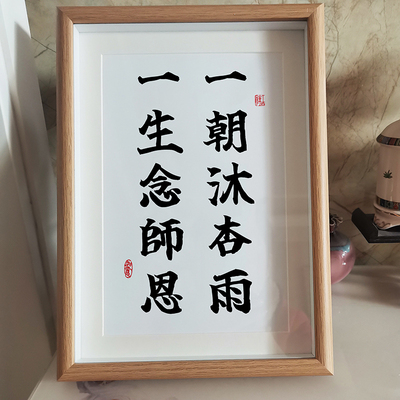 一朝沐杏雨
一生念師恩